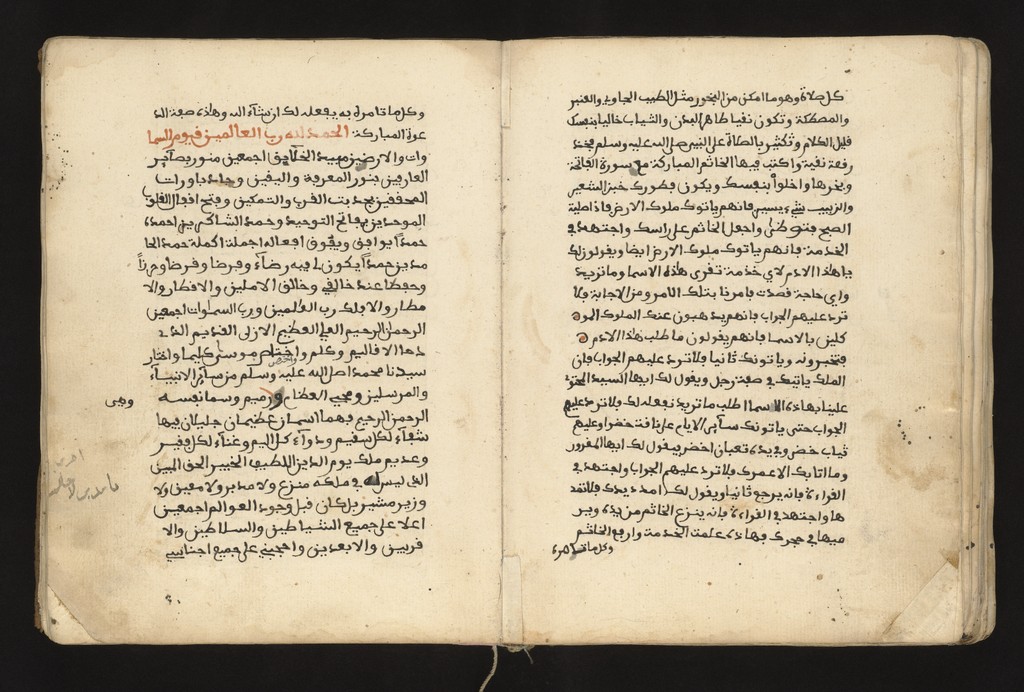 كل صلاة وهو ما امكن من البخور مثل الطيب الجاوي والعنبر
والمصطكة وتكون نقيا طاهر البدن والثياب خاليا بنفسك
قليل الكلام وتكثير بالصلاة على النبي صلى الله عليه وسلم يخذ
رقعة نقية واكتب فيها الخاتم المباركة مع سورة الفاتحة
وبخرها واخلوا بنفسك ويكون بطورك خبز الشعير
والزبيب شيء يسير فانهم ياتوك ملوك الارض فاذا صلية
الصبح فتوطئ واجعل الخاتم على راسك واجتهد في
الخدمة فانهم ياتوك ملوك الارض ايضا ويقولون لك
يا هذا الادم لاي خدمة تقرى هذه الاسما وما تريد
واي حاجة قصدت بامرنا بتلك الامر ومن الاجابة فلا
ترد عليهم الجواب فانهم يذهبون عنك الملوك المو
كلين بالاسما فانهم يقولون ما طلب هذا الادم
فتخبرونه وياتونك ثانيا ولا ترد عليهم الجواب فان
الملك ياتيك في صفة رجل ويقول لك ايها السيد
علينا بهاذه الاسما اطلب ما تريد نفعله لك فلا ترد عليهم
الجواب حتى ياتونك سائر الايام على نافة خضرا وعليهم
ثياب خضر وفي يده ثعبان اخضر يقول لك ايها المغرور
وما اتا بك الا عمرك فلا ترد عليهم الجواب واجتهد في
القراءة فانه يرجع ثانيا ويقول لك امدد يدك فلا تمد
ها واجتهد في القراءة فانه ينزع الخاتم من يده وير
ميها في حجرك فهاذه علمة الخدمة وارفع الخاتم
وكل ما تامره
وكل ما تامره به يفعله لك ان شاء الله وهذه صفة الد
عوة المباركة الحمد لله رب العالمين قيوم السما
وات والارضين مبيد الخلايق اجمعين منور بصاير
العارفين بنور المعرفة واليقين وجاذب
المحققين بجذبت القرب والتمكين وفتح اقفال القلوب
الموحدين بمفاتح التوحيد وحمد الشاكرين احمده
حمدا يوافق ويفوق افعاله اجملة اكملة حمد الحا
مدين حمدا يكون لي فيه رضاء وفرضا وفرضا وحرزا
وحفظا عند خالقي وخالق الاملين والاقطار والا
مطار والافلك رب العالمين ورب السموات اجمعين
الرحمن الرحيم العلي العظيم الازلي القديم الذي
دحا الاقاليم وكلم واختص موسى كليما واختار
سيدنا محمد اصلى الله عليه وسلم من ساير الانبياء
والمرسلين ومحيي العظام ورميم وسما نفسه
وهي
الرحمن الرحيم فهما اسمان عظيمان جليلان فيها
شفاء لكل سقيم ودواء كل اليم وغناء لكل فقير
وعديم ملك يوم الدين اللطيف الخبير الحق المبين
الذي ليس له في ملكه منزع ولا مدبر ولا معين ولا
وزير مشير بل كان قبل وجود العوالم اجمعين
اعلا على جميع الشياطين والسلاطين والا
قربين والابعدين واحجبني على جميع اجناس